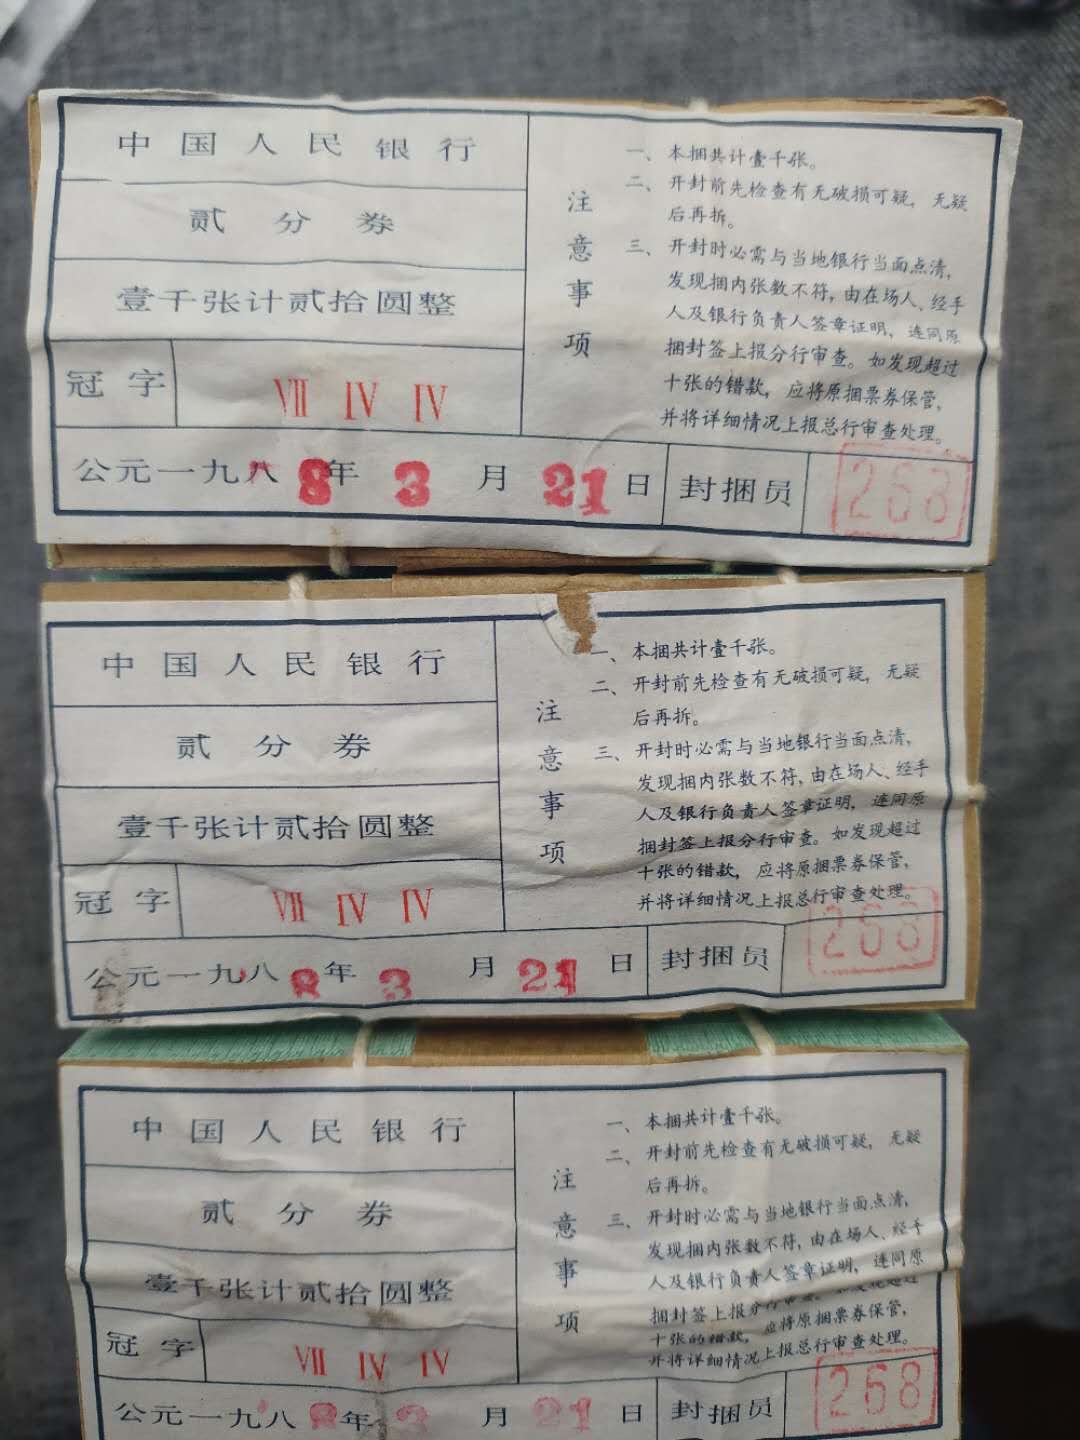 中国人民银行
贰分券
壹千张计贰拾圆整
冠字 Ⅶ Ⅳ Ⅳ
公元一九八8年3月21日 封捆员 268
注意事项
一、本捆共计壹千张。
二、开封前先检查有无破损可疑，无疑
后再拆。
三、开封时必需与当地银行当面点清，
发现捆内张数不符，由在场人、经手
人及银行负责人签章证明，连同原
捆封签上报分行审查。如发现超过
十张的错款，应将原捆票券保管，
并将详细情况上报总行审查处理。
中国人民银行
贰分券
壹千张计贰拾圆整
冠字 Ⅶ Ⅳ Ⅳ
公元一九八8年3月21日 封捆员 268
注意事项
一、本捆共计壹千张。
二、开封前先检查有无破损可疑，无疑
后再拆。
三、开封时必需与当地银行当面点清，
发现捆内张数不符，由在场人、经手
人及银行负责人签章证明，连同原
捆封签上报分行审查。如发现超过
十张的错款，应将原捆票券保管，
并将详细情况上报总行审查处理。
中国人民银行
贰分券
壹千张计贰拾圆整
冠字 Ⅶ Ⅳ Ⅳ
公元一九八8年3月21日 封捆员 268
注意事项
一、本捆共计壹千张。
二、开封前先检查有无破损可疑，无疑
后再拆。
三、开封时必需与当地银行当面点清，
发现捆内张数不符，由在场人、经手
人及银行负责人签章证明，连同原
捆封签上报分行审查。如发现超过
十张的错款，应将原捆票券保管，
并将详细情况上报总行审查处理。